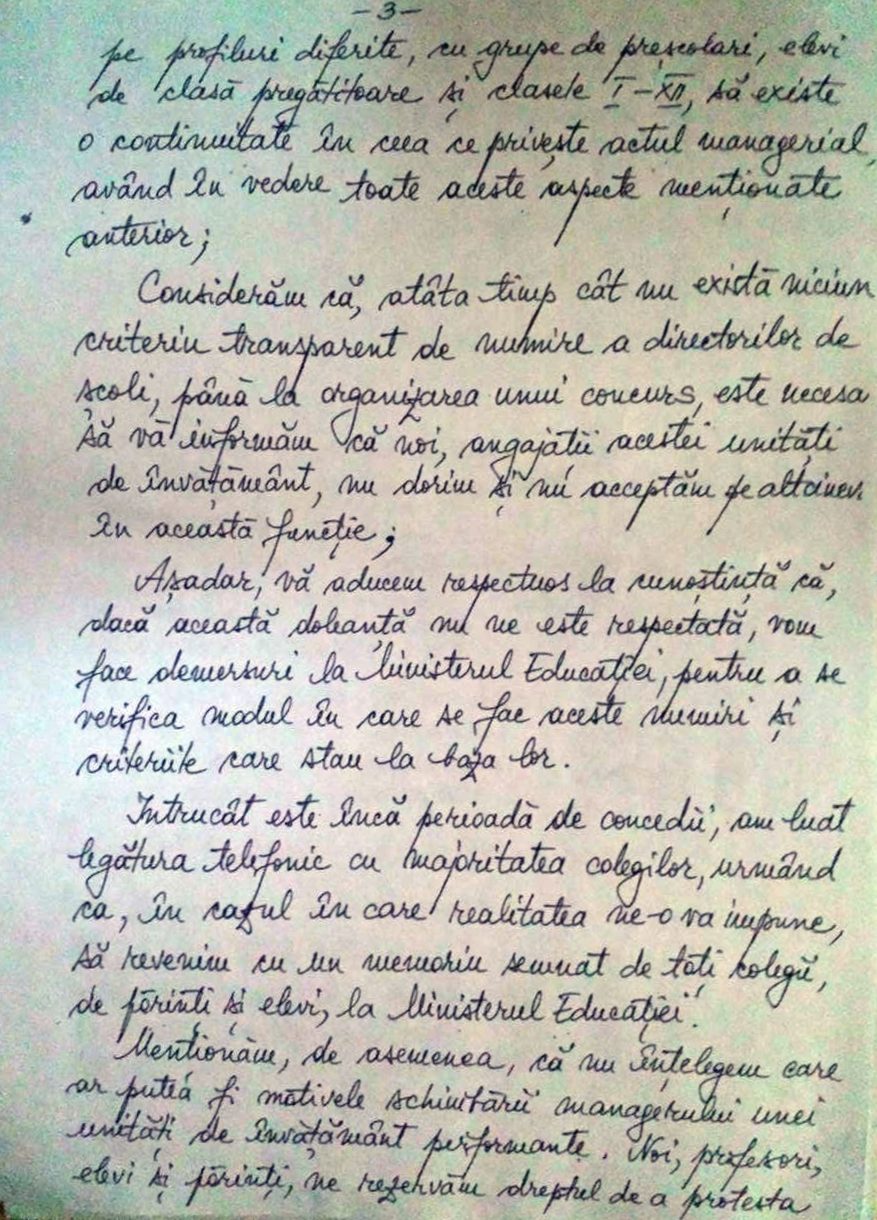 -3-
pe profiluri diferite, cu grupe de preșcolari, elevi
de clasă pregătitoare și clasele I-XII, să existe
o continuitate în ceea ce privește actul managerial,
având în vedere toate aceste aspecte menționate
anterior;
Considerăm că, atâta timp cât nu există niciun
criteriu transparent de numire a directorilor de
școli, până la organizarea unui concurs, este necesa
să vă informăm că noi, angajații acestei unități
de învățământ, nu dorim și nu acceptăm pe altcinev
în această funcție;
Așadar, vă aducem respectuos la cunoștință că,
dacă această doleanță nu ne este respectată, vom
face demersuri la Ministerul Educației, pentru a se
verifica modul în care se fac aceste numiri și
criteriile care stau la baza lor.
Intrucât este încă perioadă de concedii, am luat
legătura telefonic cu majoritatea colegilor, urmând
ca, în cazul în care realitatea ne-o va impune,
să revenim cu un memoriu semnat de toți colegii,
de părinți și elevi, la Ministerul Educației.
Menționăm, de asemenea, că nu înțelegem care
ar putea fi motivele schimbării managerului unei
unități de învățământ performante. Noi, profesori,
elevi și părinți, ne rezervăm dreptul de a protesta